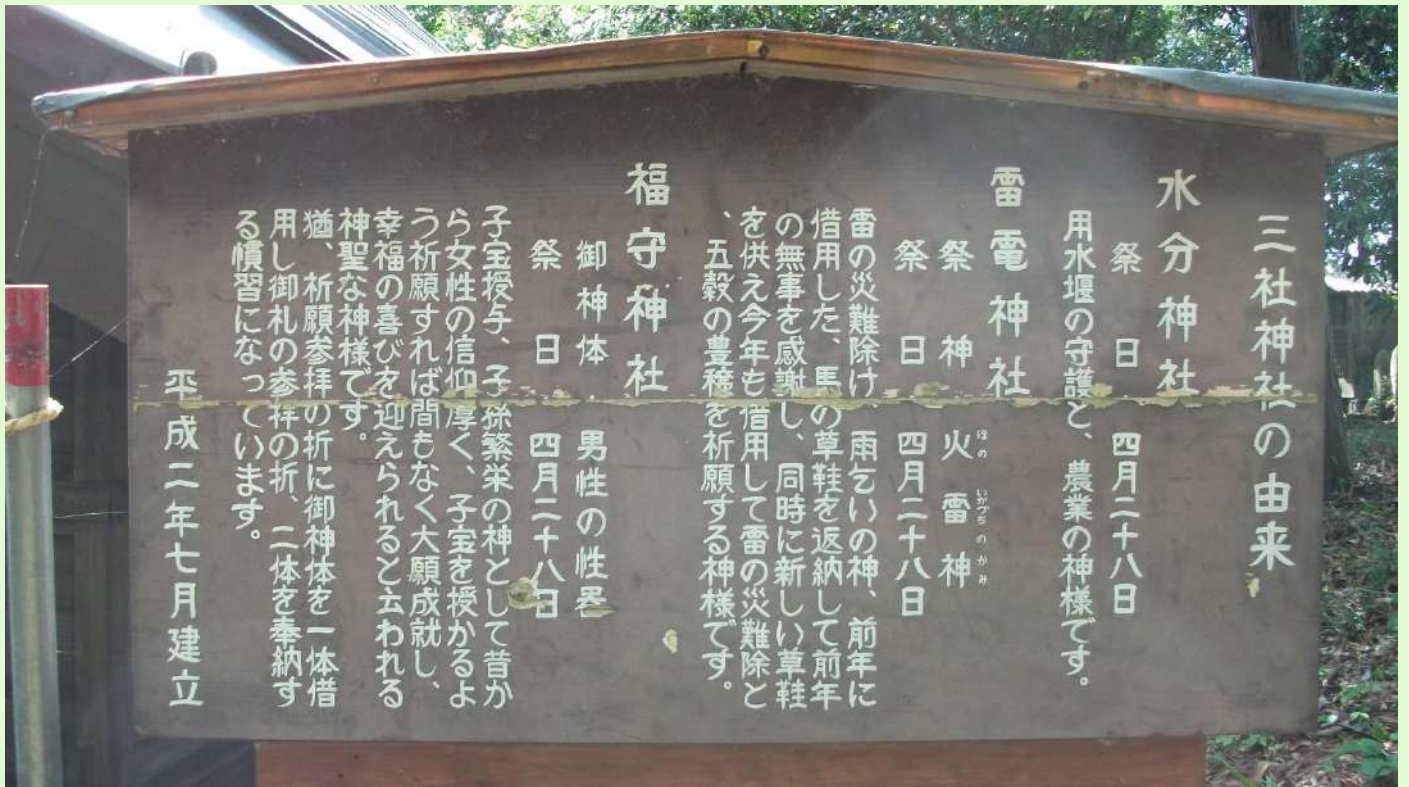 三社神社の由来
水分神社
祭日 四月二十八日
用水堰の守護と、農業の神様です。
雷電神社
祭神 火雷神
ほの いかづち の かみ
祭日 四月二十八日
雷の災難除け、雨乞いの神、前年に
借用した、馬の草鞋を返納して前年
の無事を感謝し、同時に新しい草鞋
を供え今年も借用して雷の災難除と
、五穀の豊穣を祈願する神様です。
福守神社
御神体 男性の性器
祭日 四月二十八日
子宝授与、子孫繁栄の神として昔か
ら女性の信仰厚く、子宝を授かるよ
う祈願すれば間もなく大願成就し、
幸福の喜びを迎えられると云われる
神聖な神様です。
猶、祈願参拝の折に御神体を一体借
用し御札の参拝の折、二体を奉納す
る慣習になっています。
平成二年七月建立